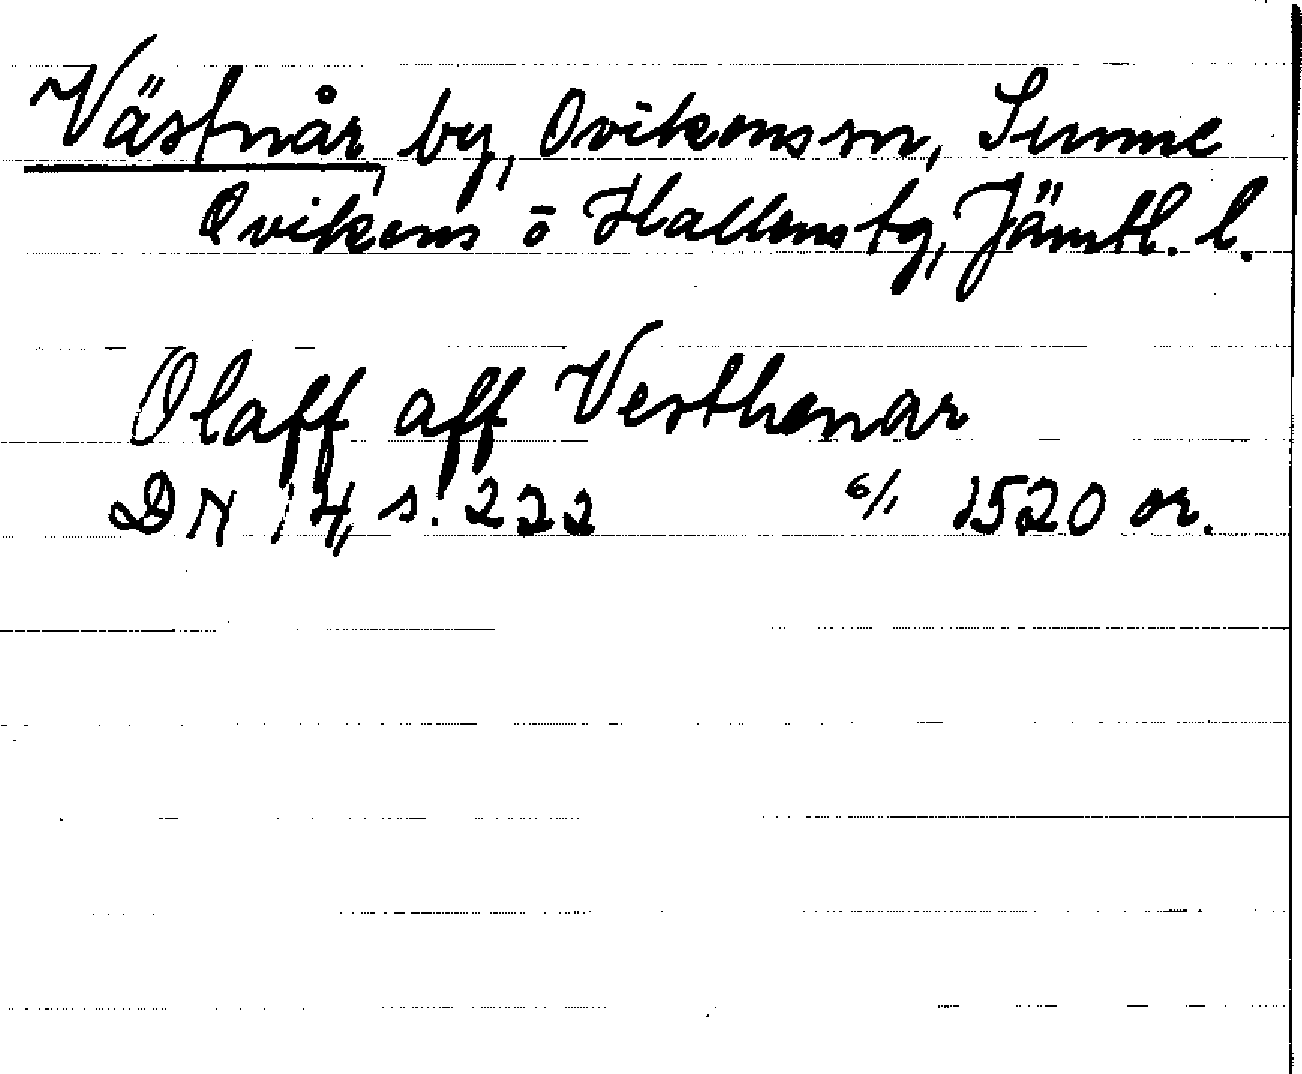 Västnår, by, Ovikens sn, Sunne
Ovikens o Hallens tg, Jämtl. l.
Olaff aff Vesthenar
DN 14, s. 222 6/1 1520 or.